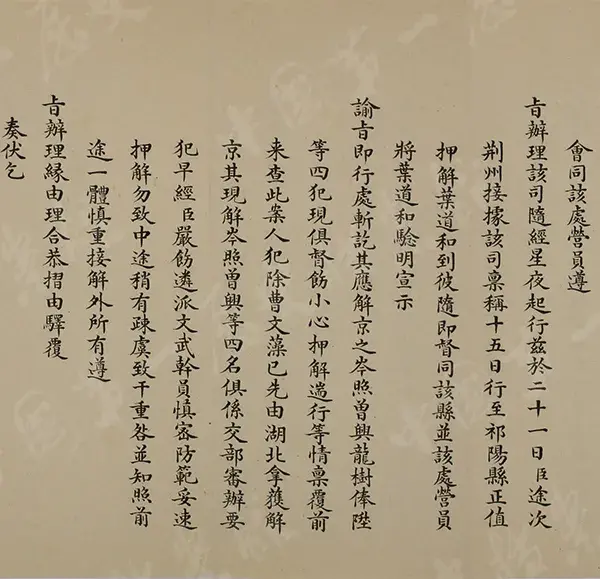 會同該處營員遵
旨辦理該司隨經星夜起行茲於二十一日臣途次
荊州接據該司稟稱十五日行至祁陽縣正值
押解葉道和到彼隨即督同該縣並該處營員
將葉道和驗明宣示
諭旨即行處斬訖其應解京之岑照曾興龍樹俸陞
等四犯現俱督飭小心押解遄行等情稟覆前
来查此案人犯除曹文藻已先由湖北拿獲解
京其現解岑照曾興等四名俱係交部審辦要
犯早經臣嚴飭遴派文武幹員慎密防範妥速
押解勿致中途稍有疎虞致干重咎並知照前
途一體慎重接解外所有遵
旨辦理緣由理合恭摺由驛覆
奏伏乞